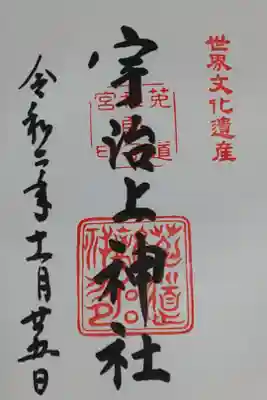 世界文化遺産
宇治上神社
令和二年十一月廿五日